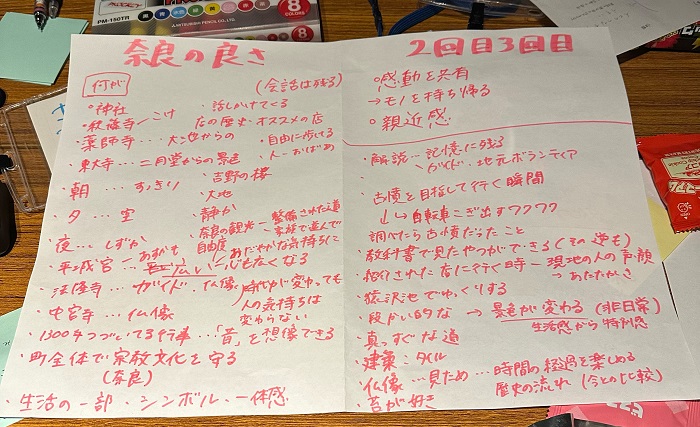 PM-150TR
MITSUBISHI PENCIL CO., LTD.
8
COLORS
8
奈良の良さ
何が
(会話は残る)
・神社
・話しかけてくる
・秋篠寺/こけ
店の歴史・オススメの店
・薬師寺…大池からの
・自由に歩ける
人一おばあ
・東大寺…二月堂からの景色
・吉野の桜
・朝…すっきり
・大地
・夕…空
・静か
・奈良の観光ー整備された道
・夜…しずか
自由度
家族で遊んで
・平城宮ーあずまや
広いー心もなくなる
あだやかな気持ちに
・法隆寺…ガイド、仏像
時代が変わっても
人の気持ちは
変わらない
・中宮寺…仏像
・1300年つづいてる行事…「昔」を想像できる
・町全体で宗教文化を守る
(奈良)
・生活の一部・シンボル・一体感
2回目3回目
○感動を共有
→モノを持ち帰る
○親近感
・解説…記憶に残る
ガイド、地元ボランティア
・古墳を目指して行く瞬間
↳自転車こぎ出すワクワク
調べたら古墳だったこと
・教科書で見たやつができる(その逆も)
・紹介された店に行く時ー現地の人の声、顔
→あたたかさ
・猿沢池でゆっくりする
・段かい的な→景色が変わる(非日常)
生活感から特別感
・真っすぐな道
・建築・タイル
・仏像…見ため…時間の経過を楽しめる
歴史の流れ(今との比較)
・苔が好き